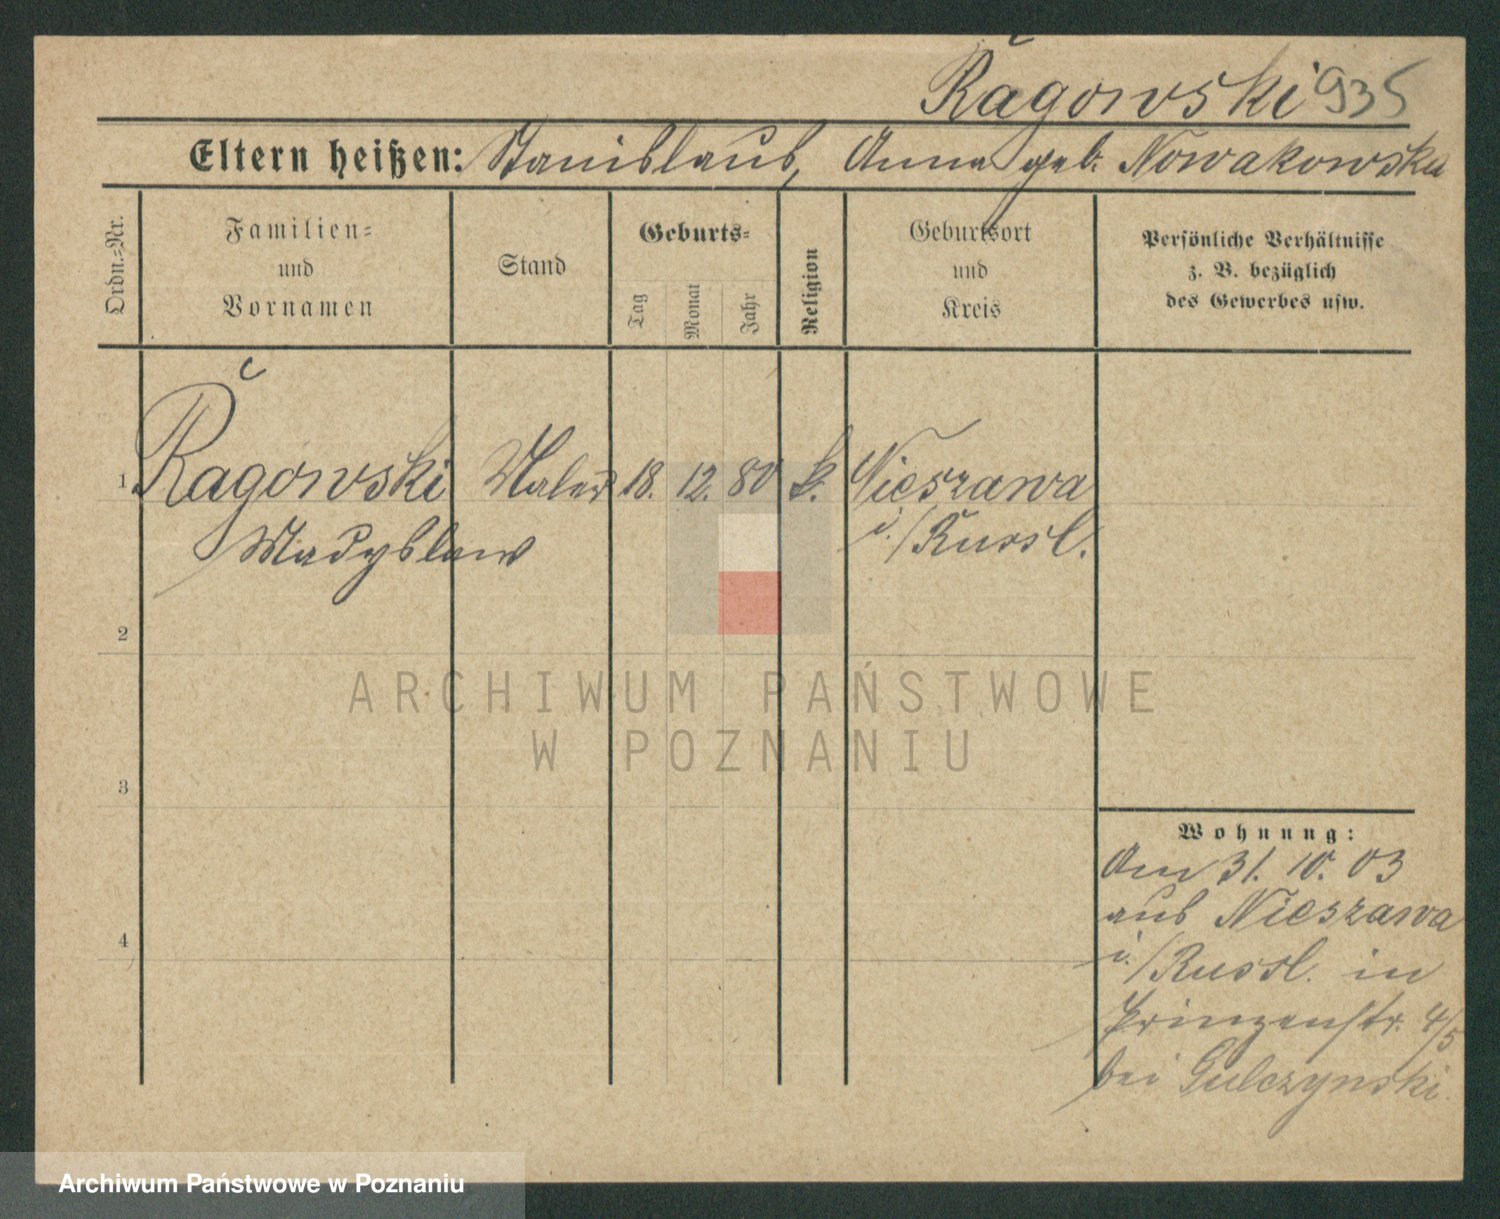 Řagowski 935
Eltern heißen: Stanislaus, Anna geb. Nowakowska
Ordn.-Nr.
Familien-
und
Vornamen
Stand
Geburts-
Tag
Monat
Jahr
Religion
Geburtsort
und
Kreis
Persönliche Verhältnisse
z. B. bezüglich
des Gewerbes usw.
1 Řagowski Maler 18. 12. 80 k. Nieszawa
Wladyslaw i./Russl.
2
3
4
Wohnung:
Am 31. 10. 03
aus Nieszawa
i./Russl. in
Prinzenstr. 4/5
bei Gulczynski.
ARCHIWUM PAŃSTWOWE
W POZNANIU
Archiwum Państwowe w Poznaniu